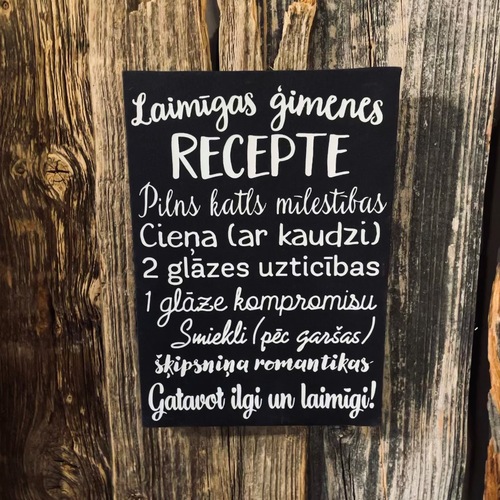 Laimīgas ģimenes
RECEPTE
Pilns katls mīlestības
Cieņa (ar kaudzi)
2 glāzes uzticības
1 glāze kompromisu
Smiekli (pēc garšas)
šķipsniņa romantikas
Gatavot ilgi un laimīgi!